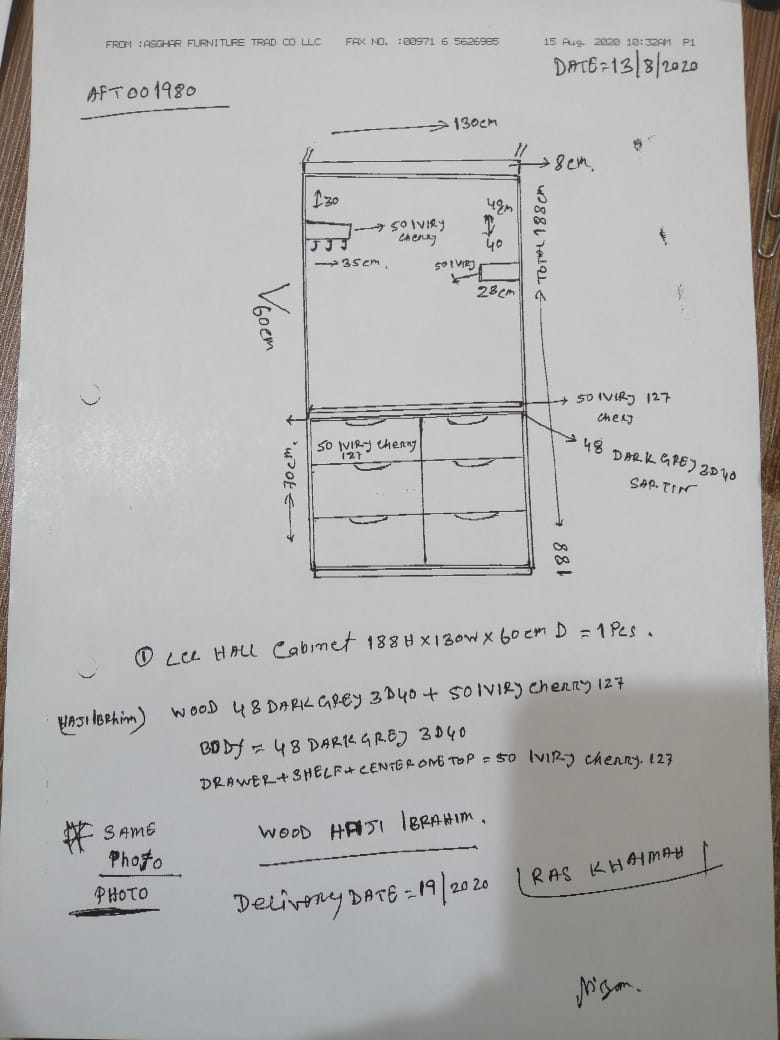 FROM :ASGHAR FURNITURE TRAD CO LLC FAX NO. :00971 6 5626985 15 Aug. 2020 10:32AM P1
DATE=13/8/2020
AFT001980
130cm
8cm.
30
50 IVIRY
cherry
35cm.
48m
40
50 IVIRY
28cm
TOTAL 188cm
60cm
50 IVIRY 127
chery
48 DARK GREY 3D40
SARTIN
50 IVIRY cherry
127
70cm.
188
① LCC HALL Cabinet 188H X 130W X 60cm D = 1 Pcs.
HAJI IBRhim) WOOD 48 DARK GREY 3D40 + 50 IVIRY cherry 127
BODY = 48 DARK GREY 3D40
DRAWER + SHELF + CENTER ONE TOP = 50 IVIRY cherry. 127
# SAME
Photo
PHOTO
WOOD HAJI IBRAHIM.
Delivery DATE = 19/2020
RAS KHAIMAH
Nizam.